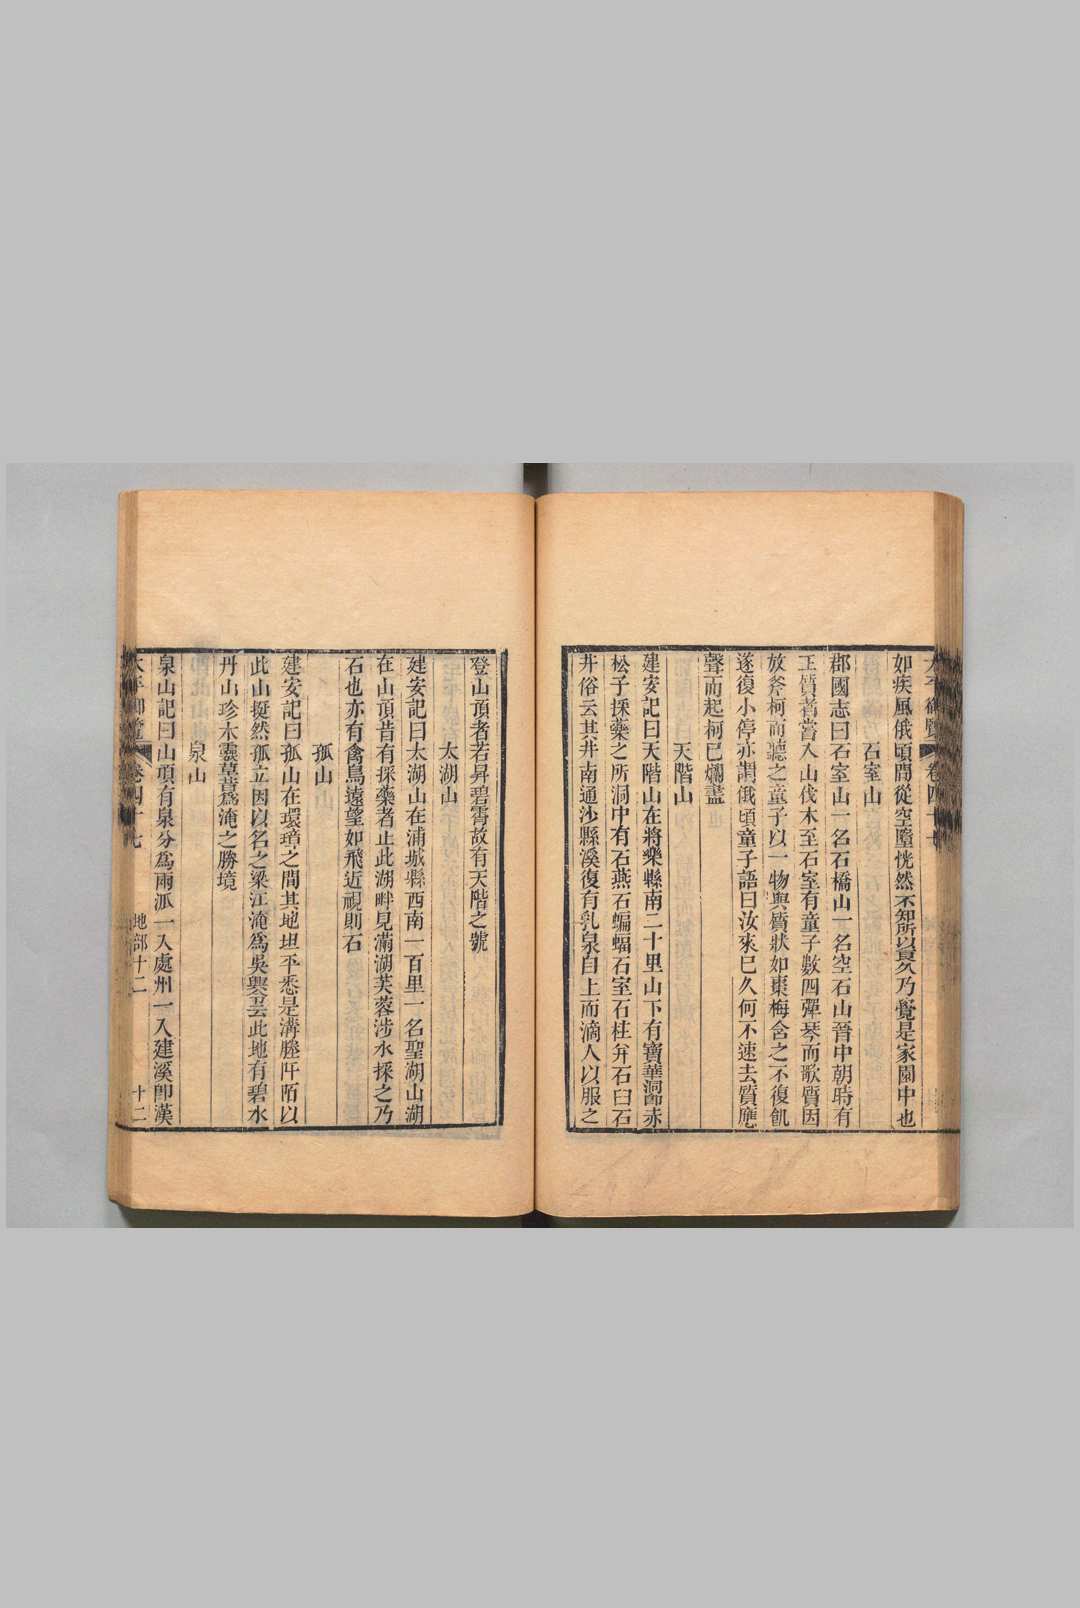 太平御覽 卷四十七
如疾風俄頃間從空墮恍然不知所以良久乃覺是家園中也
石室山
郡國志曰石室山一名石橋山一名空石山晉中朝時有
王質者嘗入山伐木至石室有童子數四彈琴而歌質因
放斧柯而聽之童子以一物與質狀如棗梅含之不復飢
遂復小停亦謂俄頃童子語曰汝來已久何不速去質應
聲而起柯已爛盡
天階山
建安記曰天階山在將樂縣南二十里山下有寶華洞卽赤
松子採藥之所洞中有石燕石蝙蝠石室石柱幷石臼石
井俗云其井南通沙縣溪復有乳泉自上而滴人以服之
登山頂者若昇碧霄故有天階之號
太湖山
建安記曰太湖山在浦城縣西南一百里一名聖湖山湖
在山頂昔有採藥者止此湖畔見滿湖芙蓉涉水採之乃
石也亦有禽鳥遠望如飛近視則石
孤山
建安記曰孤山在環璋之間其地坦平悉是溝塍阡陌以
此山挺然孤立因以名之梁江淹爲吳興令云此地有碧水
丹山珍木靈草皆爲淹之勝境
泉山
泉山記曰山頂有泉分爲兩派一入處州一入建溪卽漢
太平御覽 卷四十七 地部十二 十二